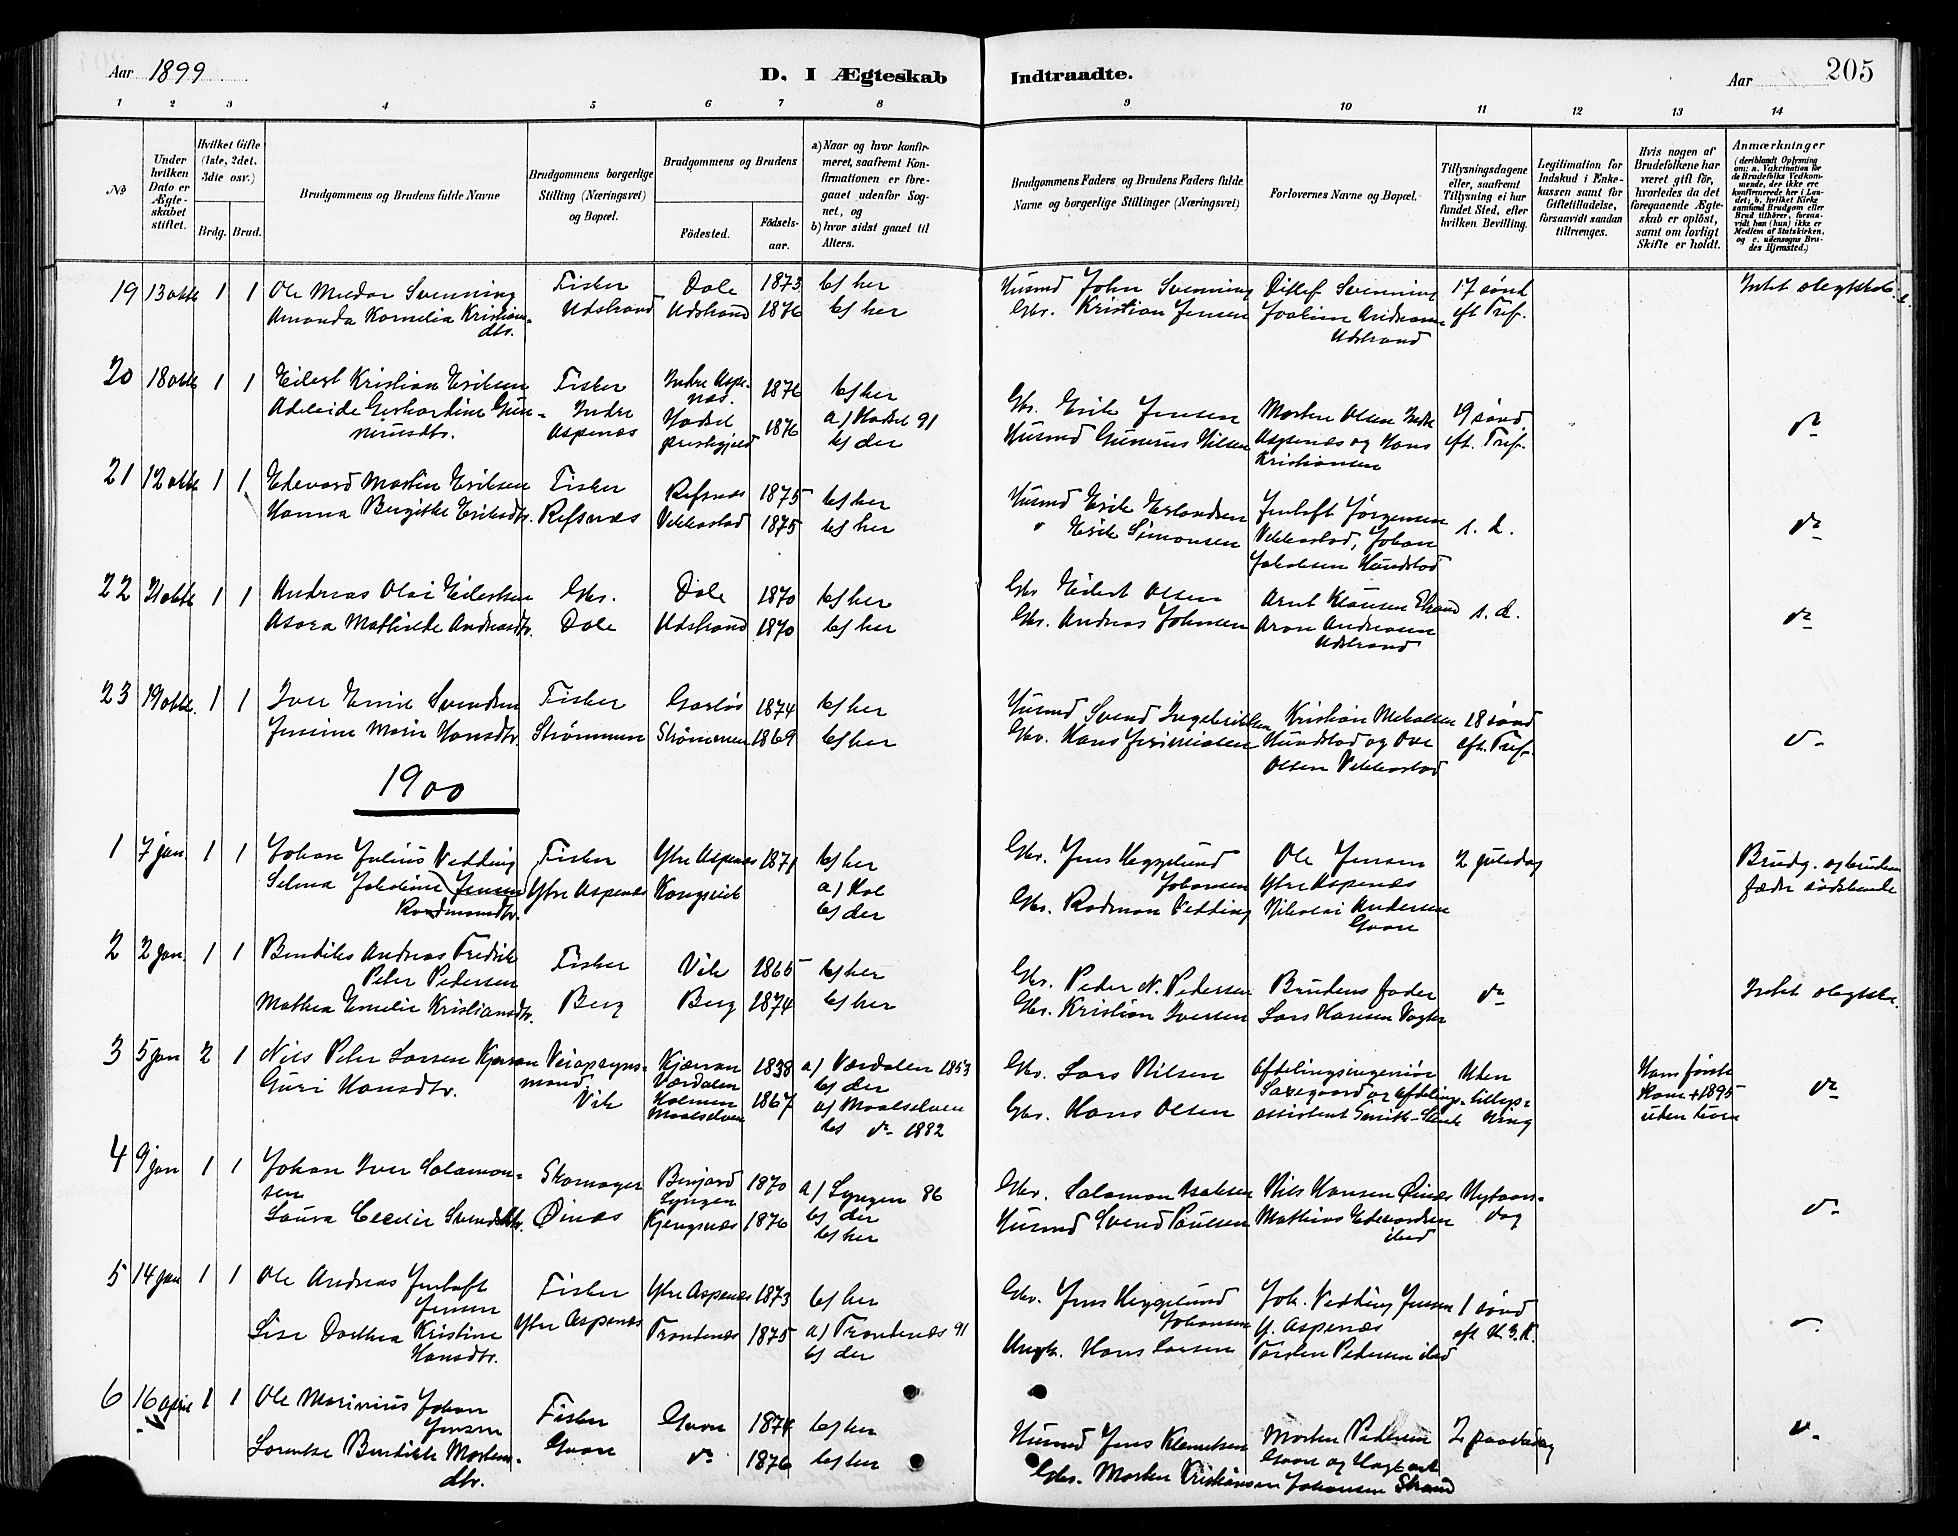 Aar 1899
D. I Ægteskab Indtraadte.
Aar 205
1 2 3 4 5 6 7 8 9 10 11 12 13 14
№
Under hvilken Dato er Ægteskabet stiftet.
Hvilket Gifte (1ste, 2det, 3die osv.)
Brdg. Brud.
Brudgommens og Brudens fulde Navne
Brudgommens borgerlige Stilling (Næringsvei) og Bopæl.
Brudgommens og Brudens
Fødested.
Fødselsaar.
a) Naar og hvor konfirmeret, saafremt Konfirmationen er foregaaet udenfor Sognet, og
b) hvor sidst gaaet til Alters.
Brudgommens Faders og Brudens Faders fulde Navne og borgerlige Stillinger (Næringsvei)
Forlovernes Navne og Bopæl.
Tillysningsdagene eller, saafremt Tillysning ei har fundet Sted, efter hvilken Bevilling.
Legitimation for Indskud i Enkekassen samt for Giftetilladelse, forsaavidt saadan tiltrænges.
Hvis nogen af Brudefolkene har været gift før, hvorledes da det foregaaende Ægteskab er opløst, samt om lovligt Skifte er holdt.
Anmærkninger
(deriblandt Oplysning om: a. Vakcination for de Brudefolks Vedkommende, der ikke ere konfirmerede her i Landet; b, hvilket Kirkesamfund Brudgom eller Brud tilhører, forsaavidt han (hun) ikke er Medlem af Statskirken, og c. udensogns Brudes Hjemsted.)
19 13 oktb 1 1 Ole Medar Svenning Fisker Dale 1873 b) her Husmd John Svenning Ditlef Svenning 17 sønd Intet slegtskab.
Amanda Kornelia Kristiansdtr. Udstrand Udstrand 1876 b) her Gbr. Kristian Jensen Joakim Andreassen Udstrand eft Tref.
20 18 oktb 1 1 Eilert Kristian Eriksen Fisker Indre Aspenæs 1876 b) her Gbr. Erik Jensen Morten Olsen Indre 19 sønd do
Adelaide Gerhardine Gunneriusdtr. Indre Aspenæs Hadsel prestegjeld 1876 a) Hadsel 91 b) der Husmd Gunerus Nilsen Aspenæs og Hans Kristiansen eft. Tref.
21 12 oktb 1 1 Edevard Martin Eriksen Fisker Refsnæs 1875 b) her Husmd Erik Erlandsen Jenloft Jørgensen s. d. do
Hanna Birgitte Eriksdtr. Refsnæs Vikkestad 1875 b) her " Erik Simonsen Vikkestad, Johan Jakobsen Hundstad
22 21 oktb 1 1 Andreas Olai Eilertsen Gbr. Dale 1870 b) her Gbr Eilert Olsen Arnt Klausen Strand s. d. do
Asora Mathilde Andreasdtr. Dale Udstrand 1870 b) her Gbr. Andreas Johnsen Aron Andreasen Udstrand
23 19 oktb. 1 1 Iver Emil Svendsen Fisker 1874 b) her Husmd Svend Ingebriktsen Kristian Mikalsen 18 sønd do
Jensine Marie Hansdtr. Strømmen Strømmen 1869 b) her Gbr. Hans Hundstad og Ove Olsen Vikkestad eft. Tref.
1900
1 7 jan. 1 1 Johan Julius Vedding Fisker Ytre Aspenæs 1871 b) her Gbr. Jens Heggelund Johansen Ole Jensen Ytre Aspenæs 2 juledag Brudg. og bruden fædre sødskende
Selma Jakobine Jensen Rodmandtr. Ytre Aspenæs Kongsvik a) Hol b) der Gbr. Rodman Vedding Nikolai Andersen Gaan
2 2 jan. 1 1 Bendiks Andreas Fredrik Peter Pedersen Fisker Vik 1865 b) her Gbr. Peder N. Pedersen Brudens fader do Intet slegtsk.
Mathea Emelie Kristiansdtr. Berg Berg 1874 b) her Gbr. Kristian Iversen Lars Hansen
3 5 jan 2 1 Nils Peter Larsen Kjæran Veiopsynsmand Kjæran Værdalen 1838 a) Værdalen 1853 b) der Gbr. Lars Nilsen Afdelingsingeniør Saxegaard og afdelings- Uden Hans første Kone + 1895 do
Guri Hansdtr. Vik Holmen Maalselven 1867 a) Maalselven b) do 1882 Gbr. Hans Olsen assistent Smith- tillysning uden barn
4 9 jan 1 1 Johan Iver Salamonsen Skomager Lyngen 1870 a) Lyngen 86 b) der Gbr. Salamon Isaksen Nils Hansen Øinæs Nytaarsdag do
Laura Cecilie Svendsdtr. Øinæs Kjengsnæs 1876 b) her Husmd Svend Paulsen Mathias Edevardsen ibid
5 14 jan 1 1 Ole Andreas Jenloft Jensen Fisker Ytre Aspenæs 1873 b) her Gbr. Jens Heggelund Johansen Joh. Vedding Jensen Y. Aspenæs 1 sønd do
Lise Dorthea Kristine Hansdtr. Ytre Aspenæs Trondenæs 1875 a) Trondenæs 91 b) der Ungk. Hans Larsen Torsten Pedersen ibid eft H.3.K.
6 16 april 1 1 Ole Marinius Johan Jensen Fisker Gaan 1874 b) her Husmd Jens Klemetsen Morten Pedersen 2 paaskedag do
Lorentse Bendikte Mortensdtr. Gaan do 1876 b) her Gbr. Morten Kristiansen Gaan og Johansen Strand